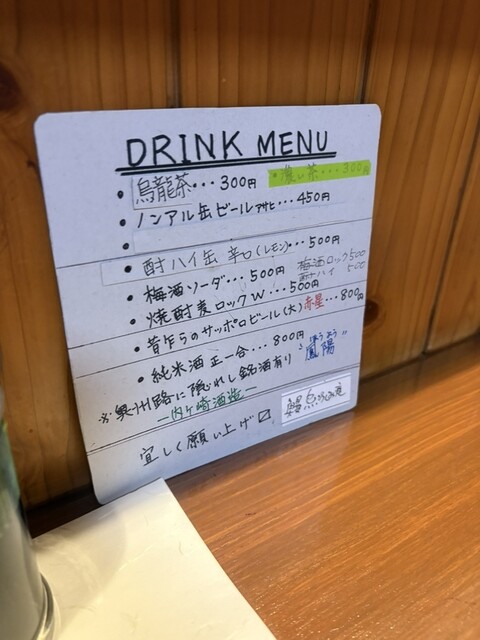 DRINK MENU
・烏龍茶・・・300円
・濃い茶・・・300円
・ノンアル缶ビール アサヒ・・・450円
・酎ハイ缶 辛口(レモン)・・・500円
・梅酒ソーダ・・・500円
梅酒ロック500
酎ハイ 500
・焼酎麦ロックW・・・500円
・昔乍らのサッポロビール(大)赤星・・・800円
・純米酒 正一合・・・800円
※奥州路に隠れし銘酒有り
"鳳陽"
ほうよう
―内ヶ崎酒造―
宜しく願い上げ〼